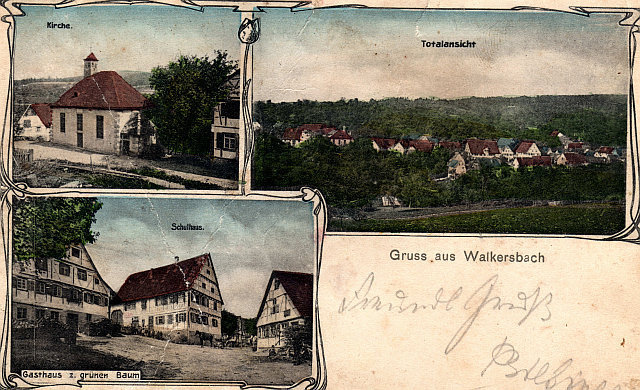 Kirche.
Totalansicht
Schulhaus.
Gruss aus Walkersbach
Freundl Gruß
Gasthaus z. grünen Baum